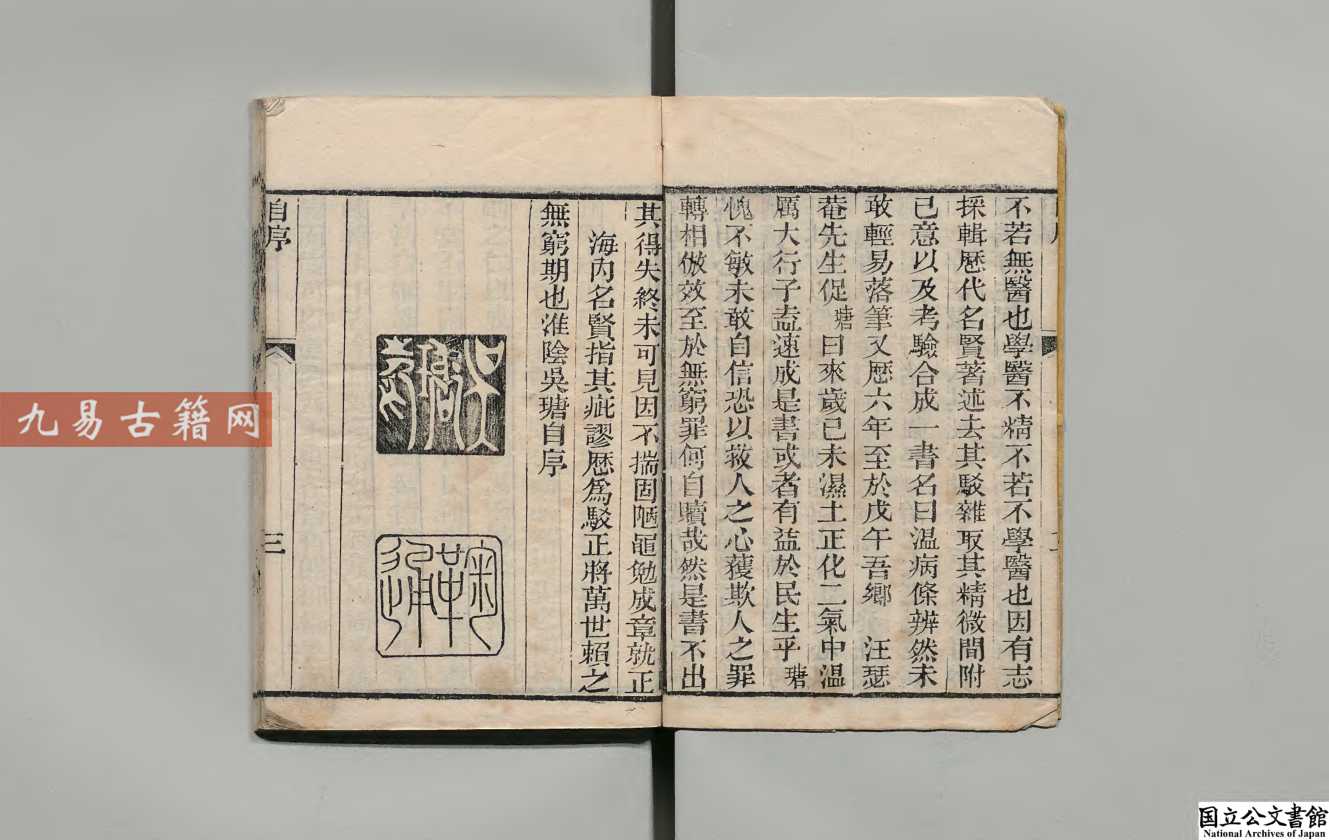 不若無醫也學醫不精不若不學醫也因有志
採輯歷代名賢著述去其駁雜取其精微間附
己意以及考驗合成一書名曰溫病條辨然未
敢輕易落筆又歷六年至於戊午吾鄉 汪瑟
菴先生促瑭曰來歲己未濕土正化二氣中溫
厲大行子盍速成是書或者有益於民生乎瑭
愧不敏未敢自信恐以救人之心獲欺人之罪
轉相倣效至於無窮罪何自贖哉然是書不出
其得失終未可見因不揣固陋黽勉成章就正
海內名賢指其疵謬歷為駁正將萬世賴之
無窮期也淮陰吳瑭自序
吳瑭
鞠通
自序
三
九易古籍网
国立公文書館
National Archives of Japan